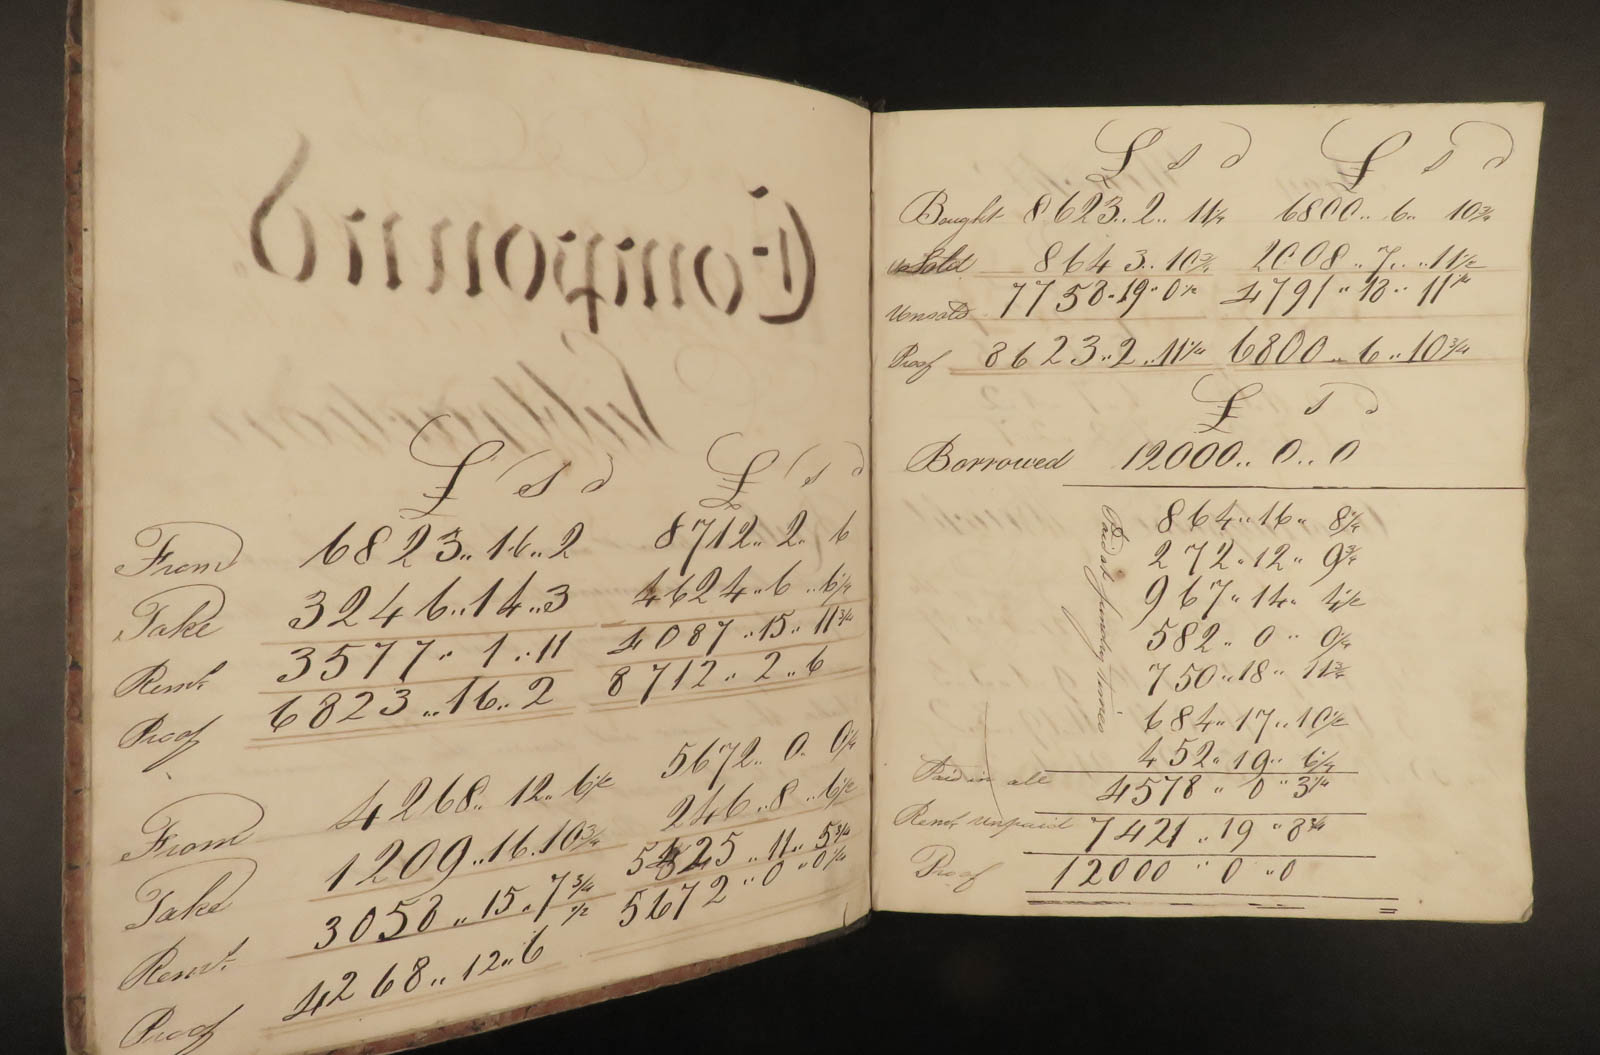 Compound
Subtraction
£ s d £ s d
From 6823..16..2 8712..2..6
Take 3246..14..3 4624..6..6 1/4
Rem.r 3577..1..11 4087..15..11 3/4
Proof 6823..16..2 8712..2..6
From 4268..12..6 1/2 5672..0..0 1/4
Take 1209..16..10 3/4 246..8..6 1/2
Rem.r 3058..15..7 3/4 5425..11..5 3/4
Proof 4268..12..6 1/2 5672..0..0 1/4
£ s d £ s d
Bought 8623..2..11 1/4 6800..6..10 3/4
Sold 864 3..10 3/4 2008..7..11 1/2
Unsold 7758..19..0 1/2 4791..18..11 1/4
Proof 8623..2..11 1/4 6800..6..10 3/4
£ s d
Borrowed 12000..0..0
Paid at Sundry Times
864..16..8 1/4
272..12..9 3/4
967..14..4 1/2
582..0..0 1/4
750..18..11 3/4
684..17..10 1/2
452..19..6 1/4
Paid in all 4578..0..3 1/4
Rem.r unpaid 7421..19..8 3/4
Proof 12000..0..0